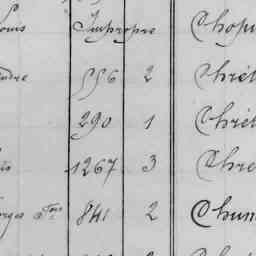 ouis Impropre Chopi
ndre 556 2 Chrét
290 1 Chrét
1267 3 Chre
rges 841 2 Chum